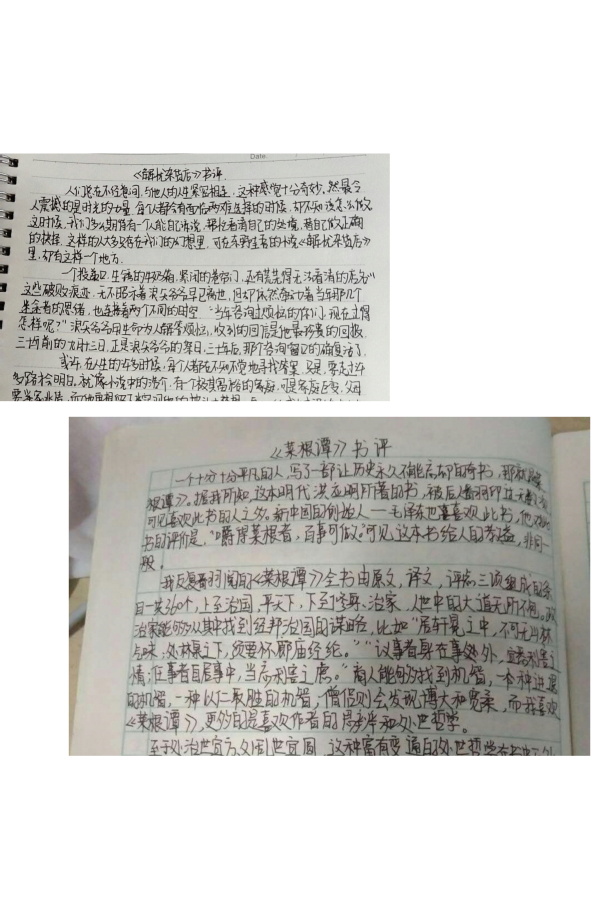 Date.
《解忧杂货店》书评.
人们总在不经意间,与他人的人生紧密相连,这种感觉十分奇妙.然最令
人震撼的是时光的力量.每个人都会有面临两难选择的时候,却不知该怎么做
这时候,我们多么期待有一个人能己倾诉,帮忙看清自己的处境,替自己做正确
的抉择.这样的人大多只存在我们的幻想里,可在东野圭吾的小说《解忧杂货店》
里,却有这样一个地方.
一个投递口,生锈的牛奶箱,紧闭的卷帘门,还有某先得无法看清的店名"
这些破败痕迹,无不昭示着浪矢爷爷早已离世,但却依然牵动着当年那几个
坐企者的思绪,也连接着两个不同的时空."当年咨询过烦恼的你们,现在过得
怎样呢?"浪矢爷爷用生命为人解答烦恼,收到的回信是他最珍贵的回报.
三十年前的九月十三日,正是浪矢爷爷的祭日,三十年后,那个咨询窗口的确复活了.
或许,在人生的许多时候,每个人都在不知不觉地寻找希望.只是,要走过许
多路拾明日.就像小说中的浩介,有个极其富裕的家庭,可是家庭巨变,父母
《菜根谭》书评
一个十分十分平凡的人,写了一部让历史永久不能忘却的奇书,那就是《菜
根谭》。据我所知,这本明代洪应明所著的书,被后人翻印
可见喜欢此书的人之多。新中国的创始人——毛泽东也喜欢此书,他对此
书的评价是,"嚼得菜根者,百事可做。"可见这本书给人的教益,非同一
般。
我反复翻阅的《菜根谭》全书由原文,译文,评品三项组成的条
目一共360个,上至治国,平天下,下至修身,治家,人世中的大道无所不包。政
治家能够从其中找到经邦治国的谋略,比如"居轩冕之中,不可无山林
气味;处林泉之下,须要怀廊庙经纶。""议事者身在事外,宜悉利害之
情;任事者身居事中,当忘利害之虑。"商人能够找到机智,一种进退
的机智,一种以仁取胜的机智;僧侣则会发现博大和宽柔,而我喜欢
《菜根谭》,更多的是喜欢作者的 和处世哲学。
至于处治世宜方,处乱世宜圆,这种富有变通的处世哲学在书中